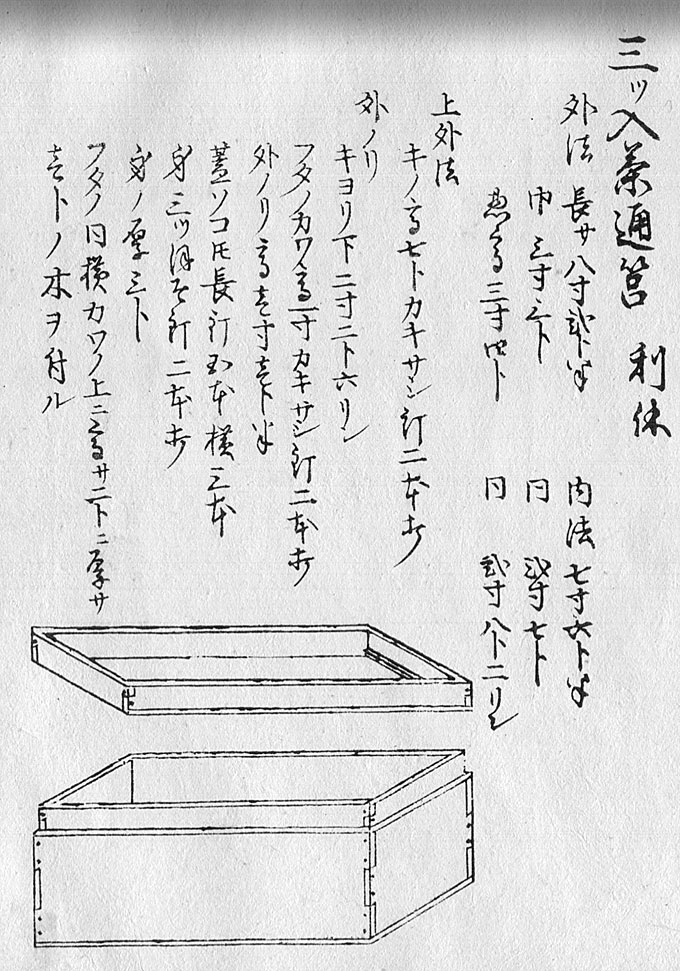 三ッ入茶通筥 利休
外法 長サ八寸弐卜半 内法七寸六卜半
巾 三寸三卜 同 弐寸七卜
惣高三寸四卜 同 弐寸八卜二リン
上外法
キノ高七トカキサシ釘二本ホ
外ノリ
キヨリ下二寸二ト六リン
フタノカワ高一寸カキサシ釘二本ホ
外ノリ高壱寸壱ト半
蓋ソコ氏長釘五本横三本
身三ツ 釘二本ホ
身ノ厚三ト
フタノ内横カワノ上ニ高サ二トニ厚サ
壱トノ木ヲ付ル